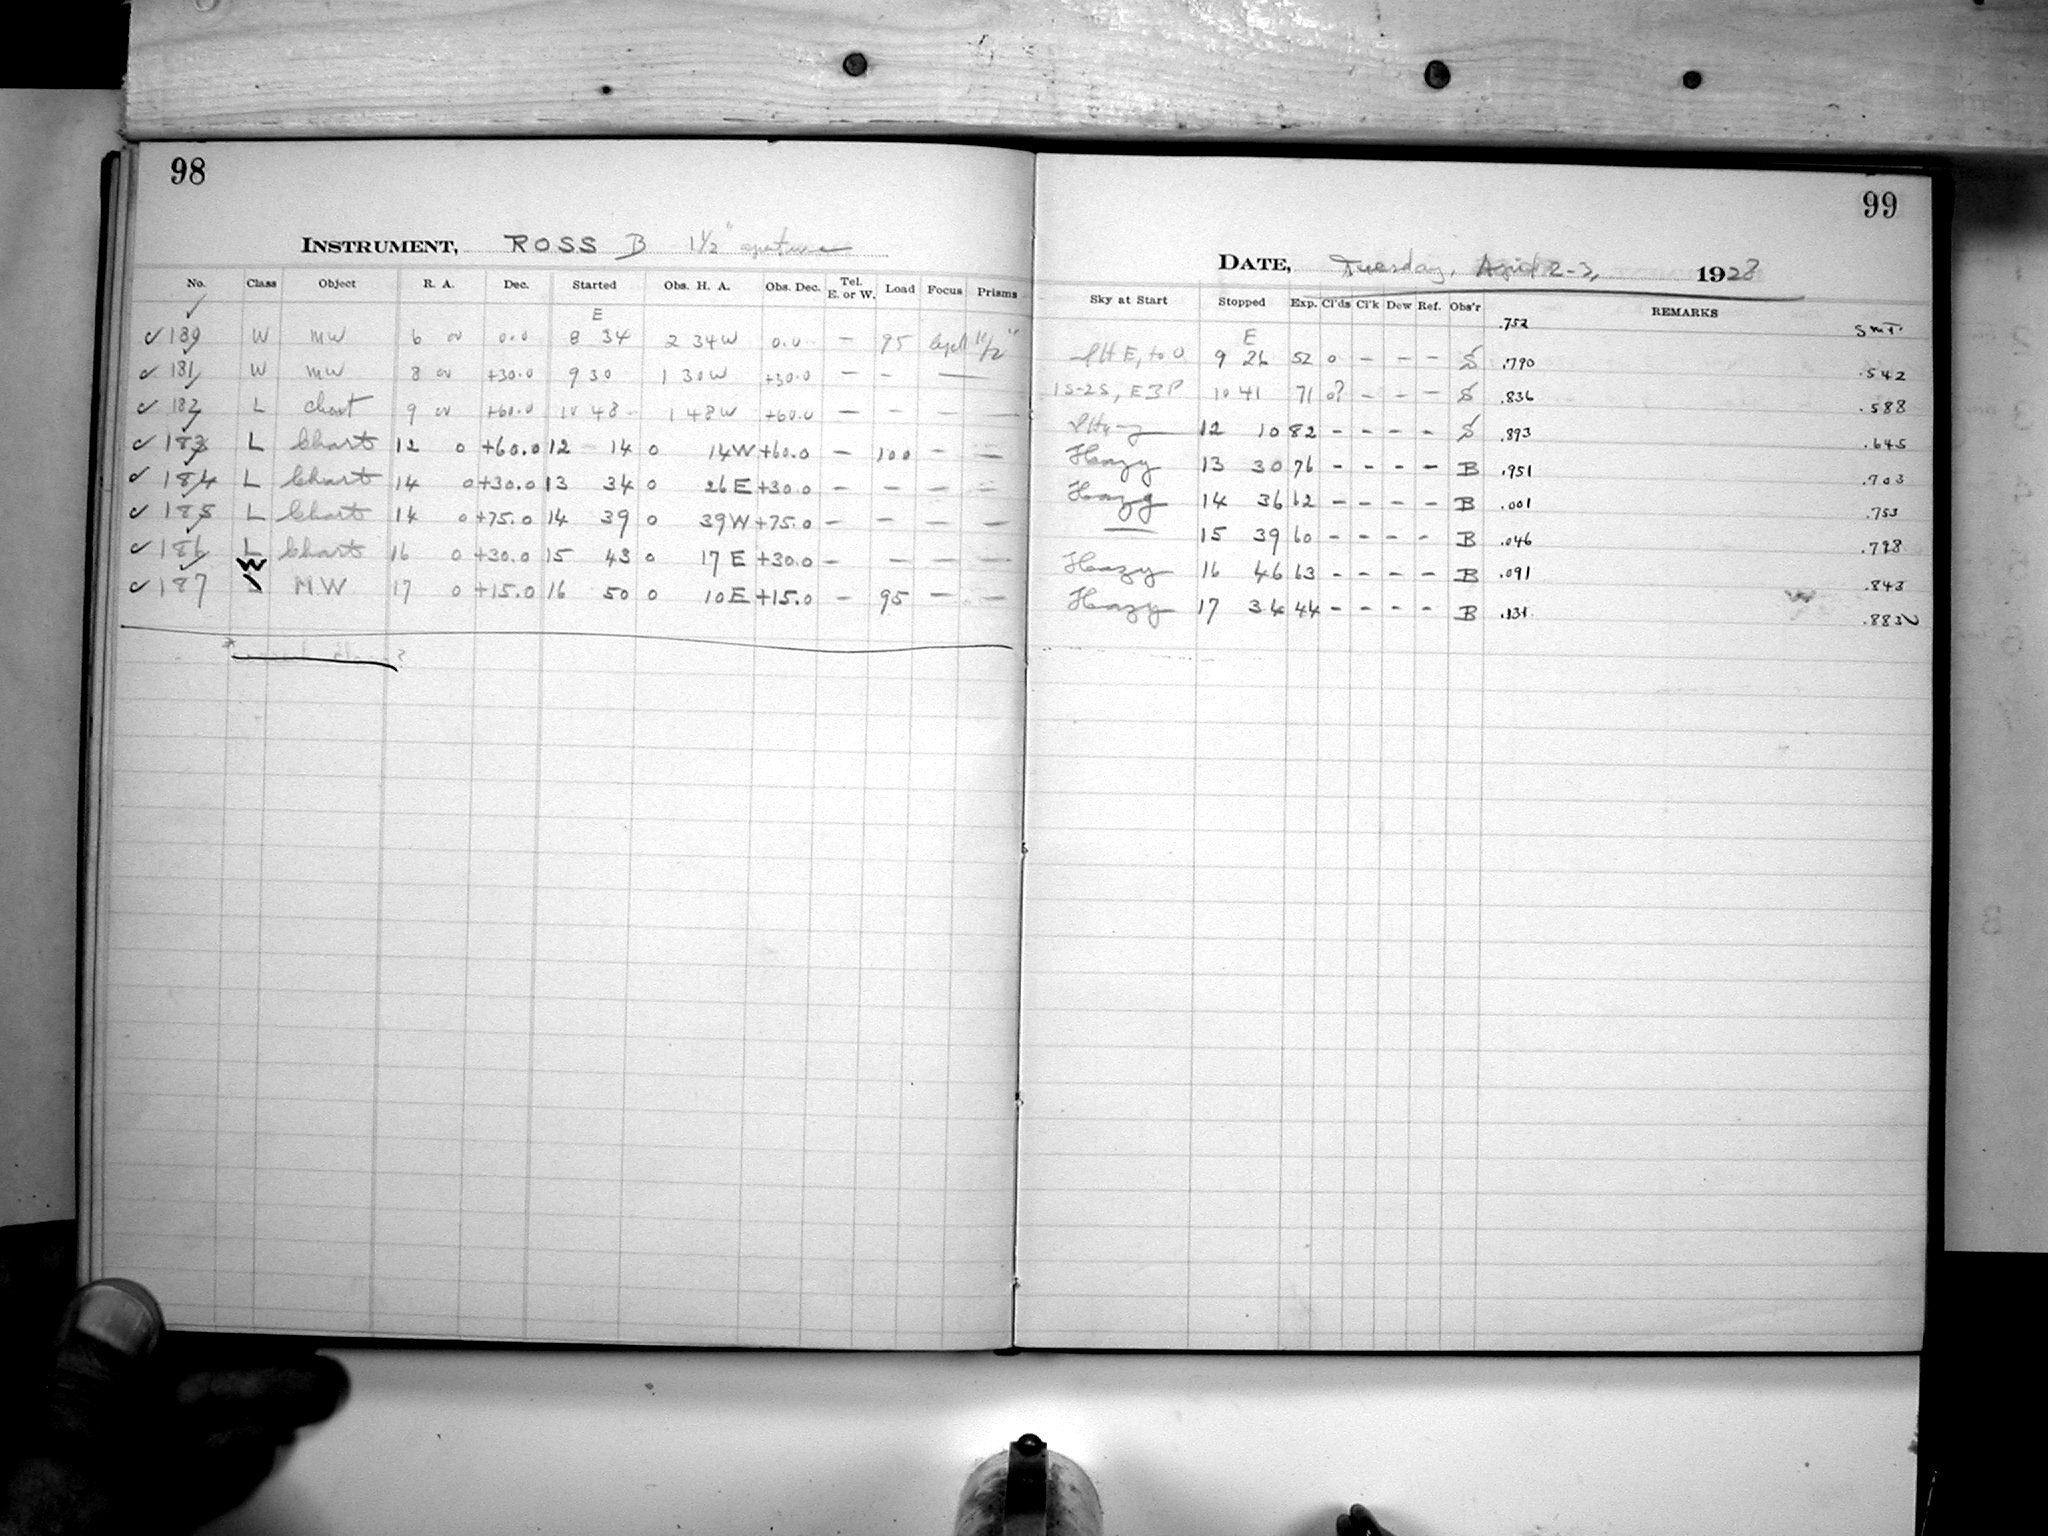 98
INSTRUMENT, ROSS B 1½" aperture
No. Class Object R. A. Dec. Started Obs. H. A. Obs. Dec. Tel. E. or W. Load Focus Prisms
E
✓ 180 W MW 6 00 0.0 8 34 2 34 W 0.0 — 95 1½"
✓ 181 W MW 8 00 +30.0 9 30 1 30 W +30.0 — – —
✓ 182 L Chart 9 00 +60.0 10 48 1 48 W +60.0 — — – —
✓ 183 L Chart 12 0 +60.0 12 14 0 14 W +60.0 — 100 – —
✓ 184 L Chart 14 0 +30.0 13 34 0 26 E +30.0 — — — —
✓ 185 L Chart 14 0 +75.0 14 39 0 39 W +75.0 — — — —
✓ 186 L Chart 16 0 +30.0 15 43 0 17 E +30.0 — — — —
✓ 187 W M.W 17 0 +15.0 16 50 0 10 E +15.0 — 95 — —
99
DATE, Tuesday, April 2-3, 1928
Sky at Start Stopped Exp. Cl'ds Cl'k Dew Ref. Obs'r REMARKS
.752 S.M.T.
E
9 26 52 0 – – – S .790 .542
1S-2S, E3P 10 41 71 0? – – – S .836 .588
12 10 82 – – – – S .893 .645
Hazy 13 30 76 – – – – B .951 .703
Hazy 14 36 62 – – – – B .001 .753
— 15 39 60 – – – – B .046 .798
Hazy 16 46 63 – – – – B .091 .843
Hazy 17 34 44 – – – – B .131 .883